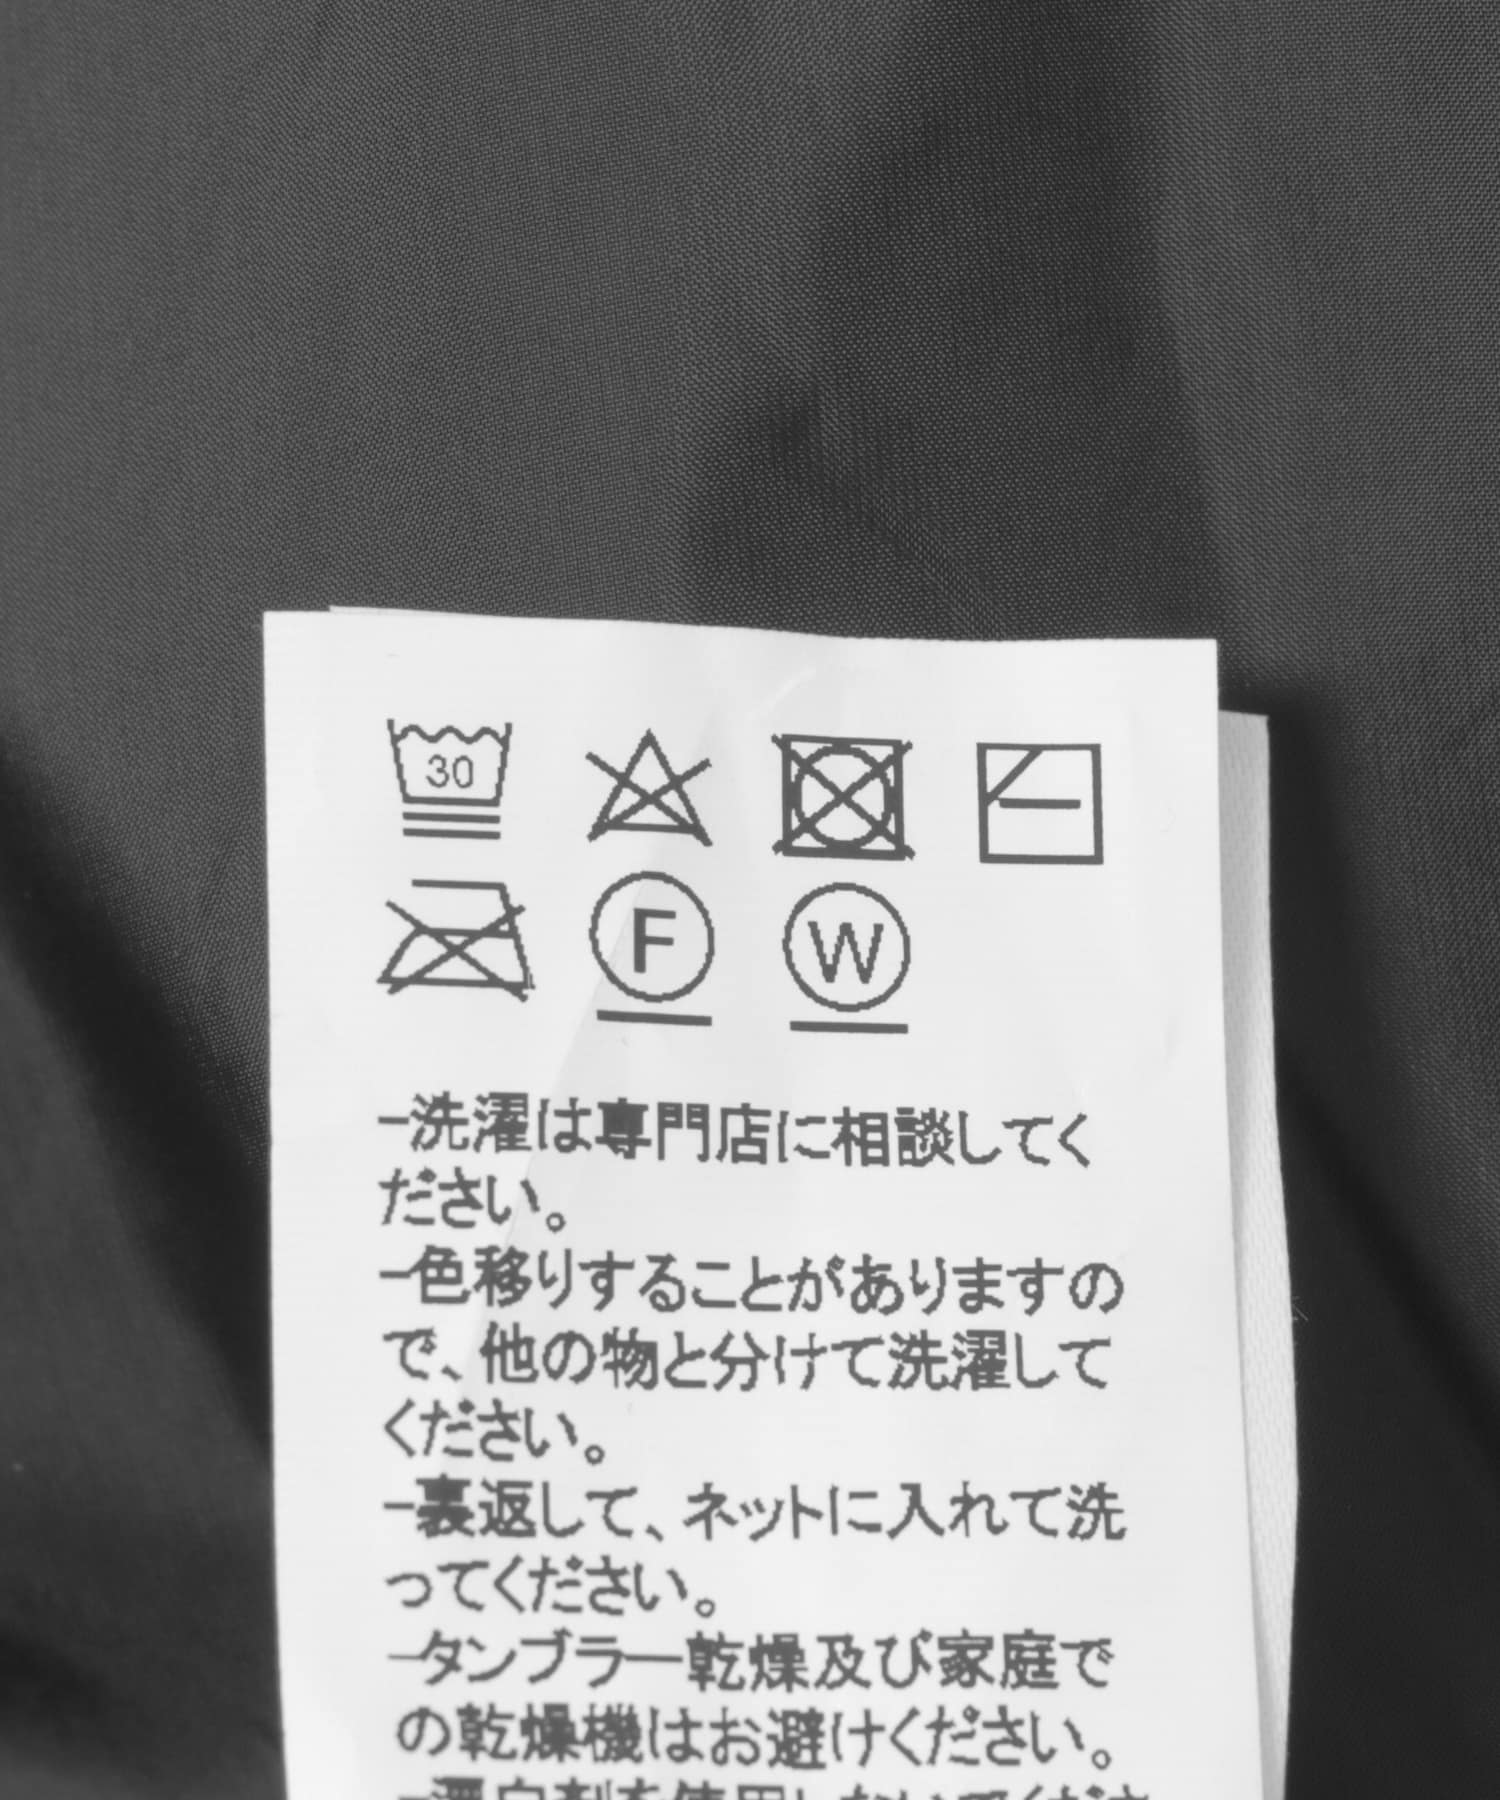 30
F W
-洗濯は専門店に相談してく
ださい。
-色移りすることがありますの
で、他の物と分けて洗濯して
ください。
-裏返して、ネットに入れて洗
ってください。
-タンブラー乾燥及び家庭で
の乾燥機はお避けください。
-漂白剤を使用しないでくださ